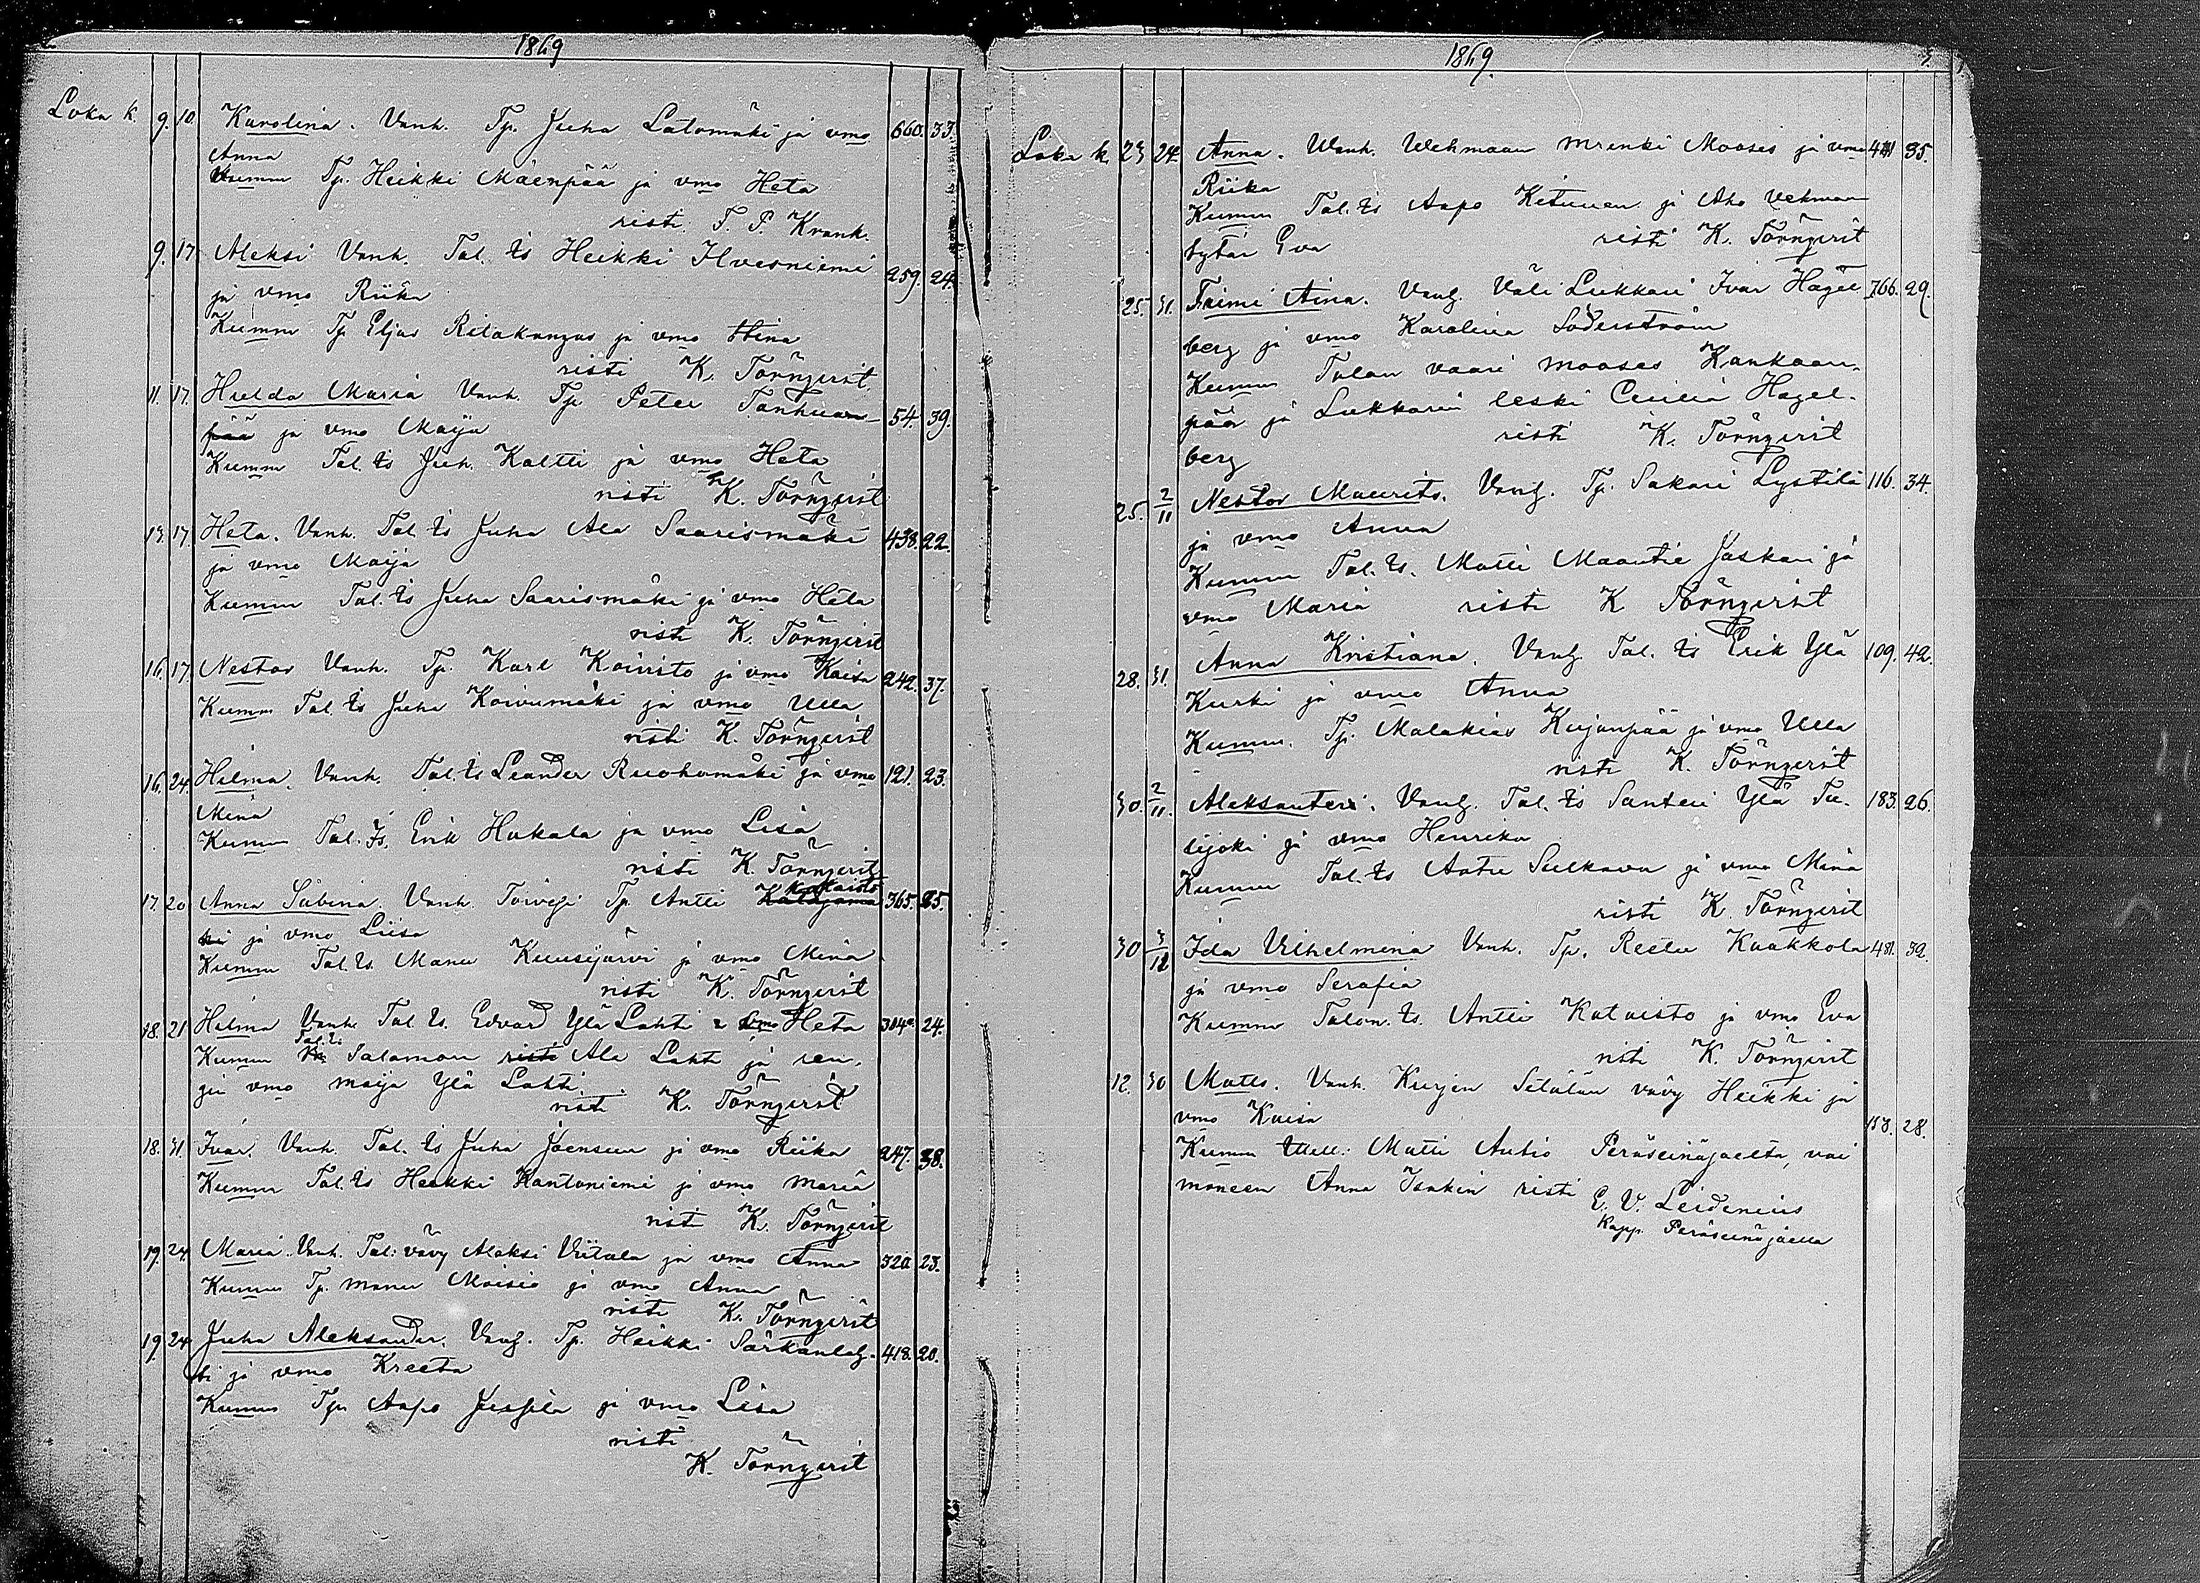 1869
Loka k. 9. 10. Karolina. Vanh. Tp. Juha Latomäki ja vmo 660. 33.
Anna
Kumm Tp. Heikki Mäenpää ja vmo Heta
risti T. P. Krank.
9. 17 Aleksi Vanh. Tal. ts Heikki Ilvesniemi 259. 24.
ja vmo Riika
Kumm Tp Eljas Ritakangas ja vmo Stina
risti K. Törnqvist
11. 17. Hulda Maria Vanh. Tp. Peter Tanhuan- 54. 39.
pää ja vmo Maija
Kumm Tal. ts Juh. Kaltti ja vmo Heta
risti K. Törnqvist
13. 17. Heta. Vanh. Tal. ts Juha Ala Saarismäki 438. 22.
ja vmo Maija
Kumm Tal. ts Juha Saarismäki ja vmo Heta
risti K. Törnqvist
16. 17. Nestor Vanh. Tp. Karl Koivisto ja vmo Kaisa 242. 37.
Kumm Tal. ts Juha Koivumäki ja vmo Ulla
risti K. Törnqvist
16. 24. Hilma. Vanh. Tal. ts Leander Ruohomäki ja vmo 121. 23.
Mina
Kumm Tal. ts. Erik Hakala ja vmo Lisa
risti K. Törnqvist
17. 20 Anna Sabina. Vanh. Torvesi Tp. Antti Katajamä Kataisto 365. 25.
ki ja vmo Liisa
Kumm Tal. ts. Manu Kuusijärvi ja vmo Mina
risti K. Törnqvist
18. 21 Hilma Vanh. Tal ts. Edvard Ylä Lahti & vmo Heta 304. 24.
Kumm Tal. ts Salomon risti Ala Lahti ja ren-
gin vmo Maija Ylä Lahti
risti K. Törnqvist
18. 31. Ivar. Vanh. Tal. ts Juha Joensuu ja vmo Riika 247. 38.
Kumm Tal. ts Heikki Kantoniemi ja vmo Maria
risti K. Törnqvist
19. 24. Maria. Vanh. Tal: vävy Aleksi Viitala ja vmo Anna 320. 23.
Kumm Tp. Manu Moisio ja vmo Anna
risti K. Törnqvist
19. 24. Juha Aleksander. Vanh. Tp. Heikki Särkänlah- 418. 20.
ti ja vmo Kreeta
Kumm Tp. Aapo Jussila ja vmo Lisa
risti
K. Törnqvist
1869.
Loka k. 23 24. Anna. Vanh. Wehmaan mrenki Mooses ja vmo 481 35.
Riika
Kumm Tal. ts Aapo Ketunen ja Aho Vehman
tytär Eva risti K. Törnqvist
25. 31. Taimi Aina. Vanh. Väli Lukkari Ivar Hagel 766. 29.
berg ja vmo Karolina Söderström
Kumm Talon vaari Mooses Kankaan-
pää ja Lukkarin leski Cecilia Hagel-
berg risti K. Törnqvist
25. 2/11 Nestor Maurits. Vanh. Tp. Sakari Lystilä 116. 34.
ja vmo Anna
Kumm Tal. ts. Matti Maantie Jaskari ja
vmo Maria risti K Törnqvist
28. 31. Anna Kristiana. Vanh. Tal. ts Erik Ylä 109. 42.
Kurki ja vmo Anna
Kumm. Tp. Malakias Kujanpää ja vmo Ulla
risti K. Törnqvist
30. 2/11. Aleksanteri. Vanh. Tal. ts Santeri Ylä Tu- 183. 26.
lijoki ja vmo Henrika
Kumm Tal. ts Antu Sulkava ja vmo Mina
risti K. Törnqvist
30 3/12 Ida Vilhelmina Vanh. Tp. Reetu Kaakkola 481. 32.
ja vmo Serafia
Kumm Talon. ts. Antti Kataisto ja vmo Eva
risti K. Törnqvist
12. 30 Matts. Vanh. Kurjen Setälän vävy Heikki ja
vmo Kaisa 153. 28.
Kumm Matti Antio Peräseinäjoelta, vai
moneen Anna Isakin risti E. V. Leidenius
Kapp. Peräseinäjoella